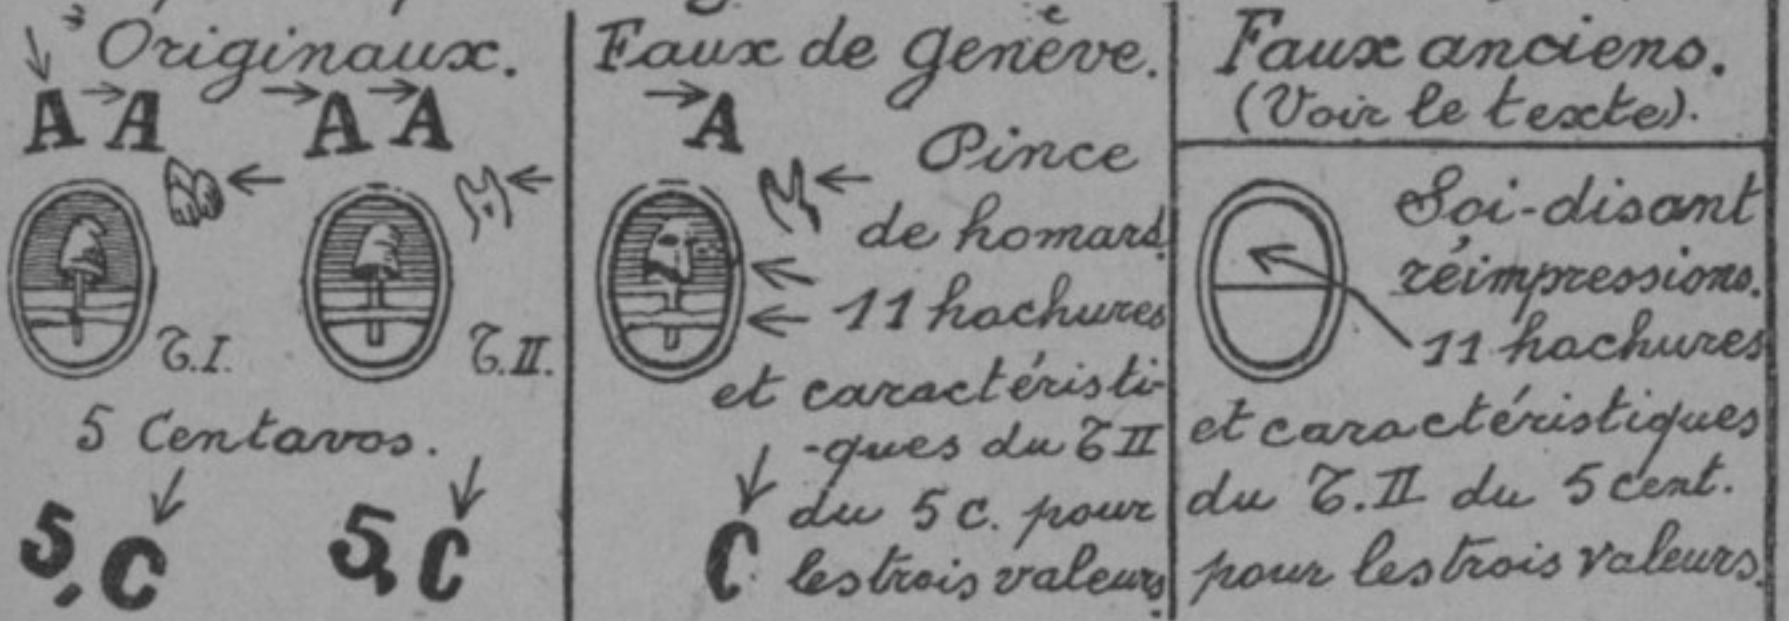 Originaux.
A A A A
T.I. T.II.
5 Centavos.
5. C 5. C
Faux de Genève.
A
Pince
de homard.
11 hachures
et caractéristi-
-ques du T II
du 5 c. pour
C les trois valeurs.
Faux anciens.
(Voir le texte).
Soi-disant
réimpressions.
11 hachures
et caractéristiques
du T.II du 5 cent.
pour les trois valeurs.